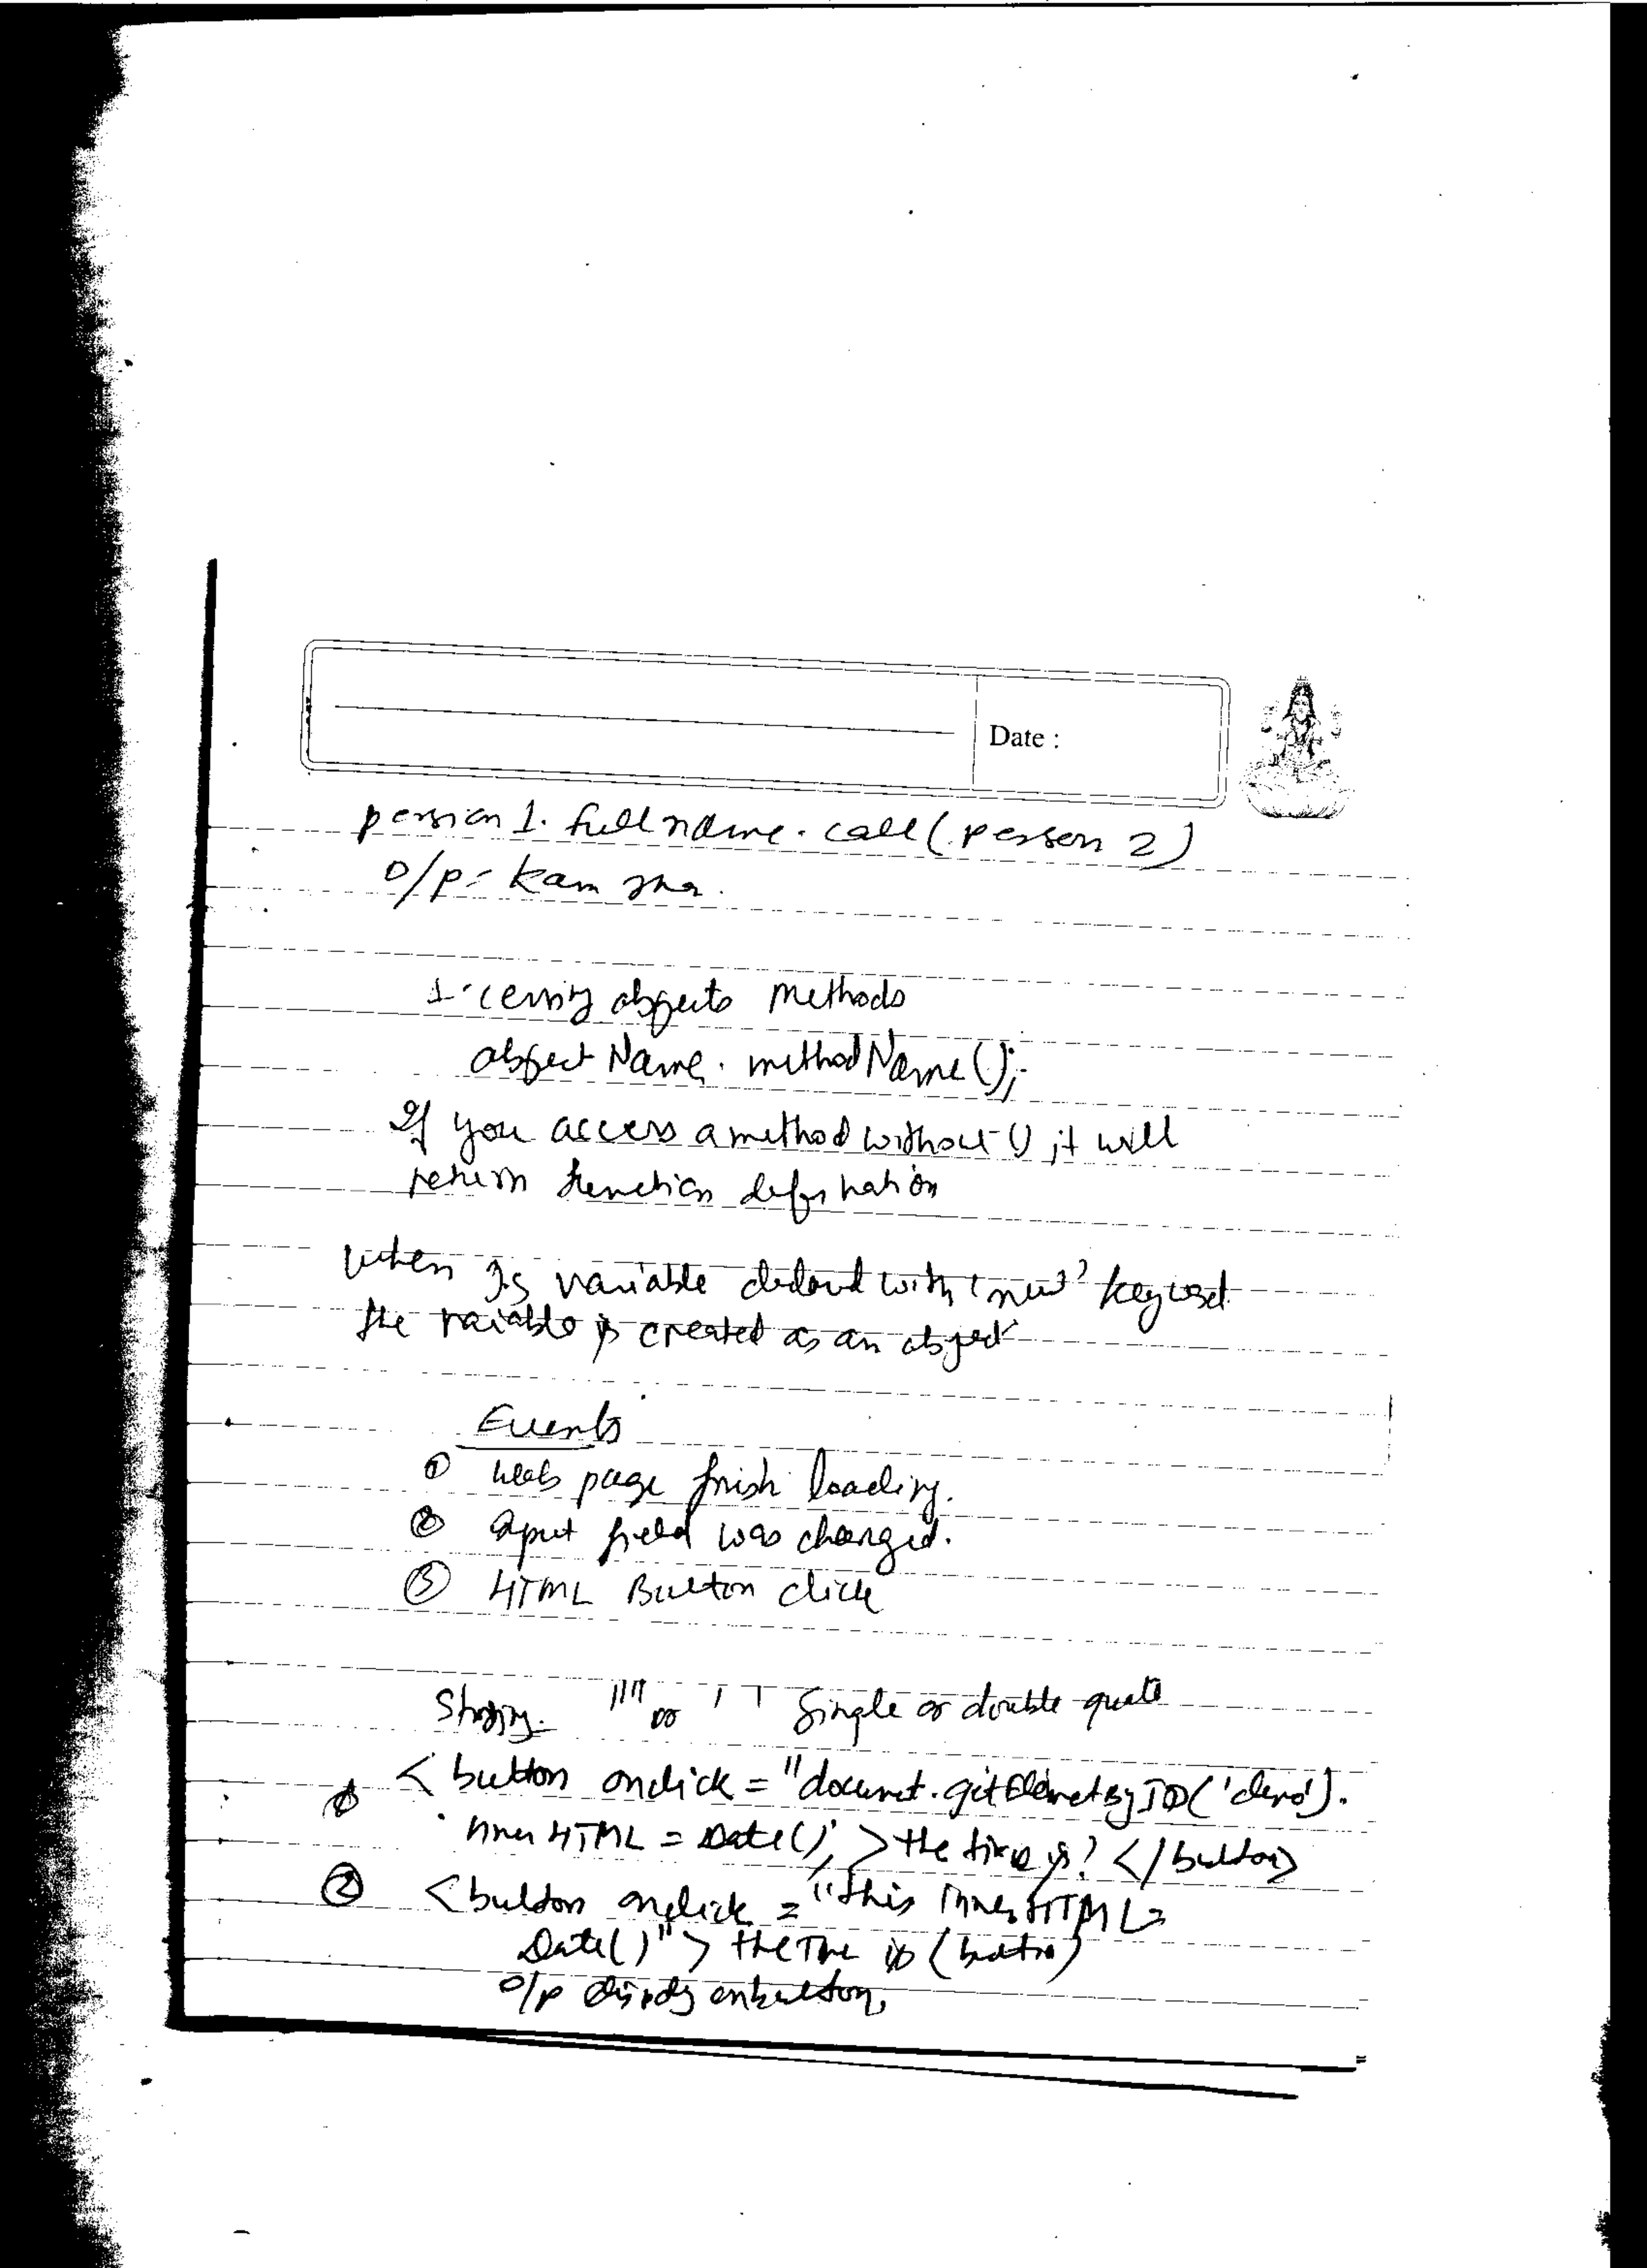 Date :
person 1. fullname. call (person 2)
o/p = kam
objects methods
object Name. methodName();
If you access a method without () it will
return function defination
when Js variable declared with 'new' keyword
the variable is created as an object
Events
① Web page finish loading.
② Input field was changed.
③ HTML Button click
String. "" or ' ' Single or double quote
① < button onclick = "documet.getElemetByID('demo').
innerHTML = Date(); > the time is? </button>
② < button onclick = "this innerHTML =
Date()" > the Time is (button)
o/p on button,